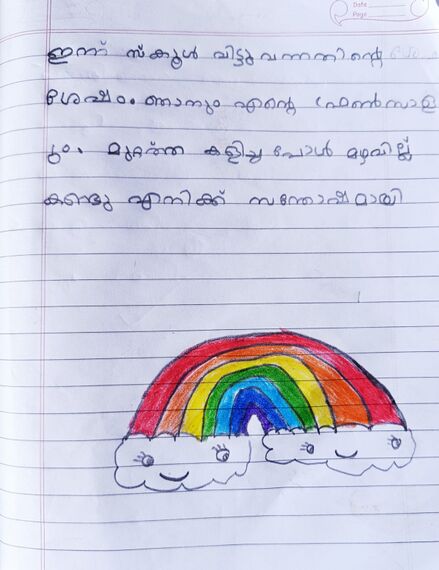 Date
Page
ഇന്ന് സ്കൂൾ വിട്ടുവന്നതിന്റെ
ശേഷം. ഞാനും എന്റെ ഫ്രണ്ട്സാളി
ും. മുറ്റത്ത കളിച്ചപോൾ മഴവില്ല്
കണ്ടു എനിക്ക് സന്തോഷമായി